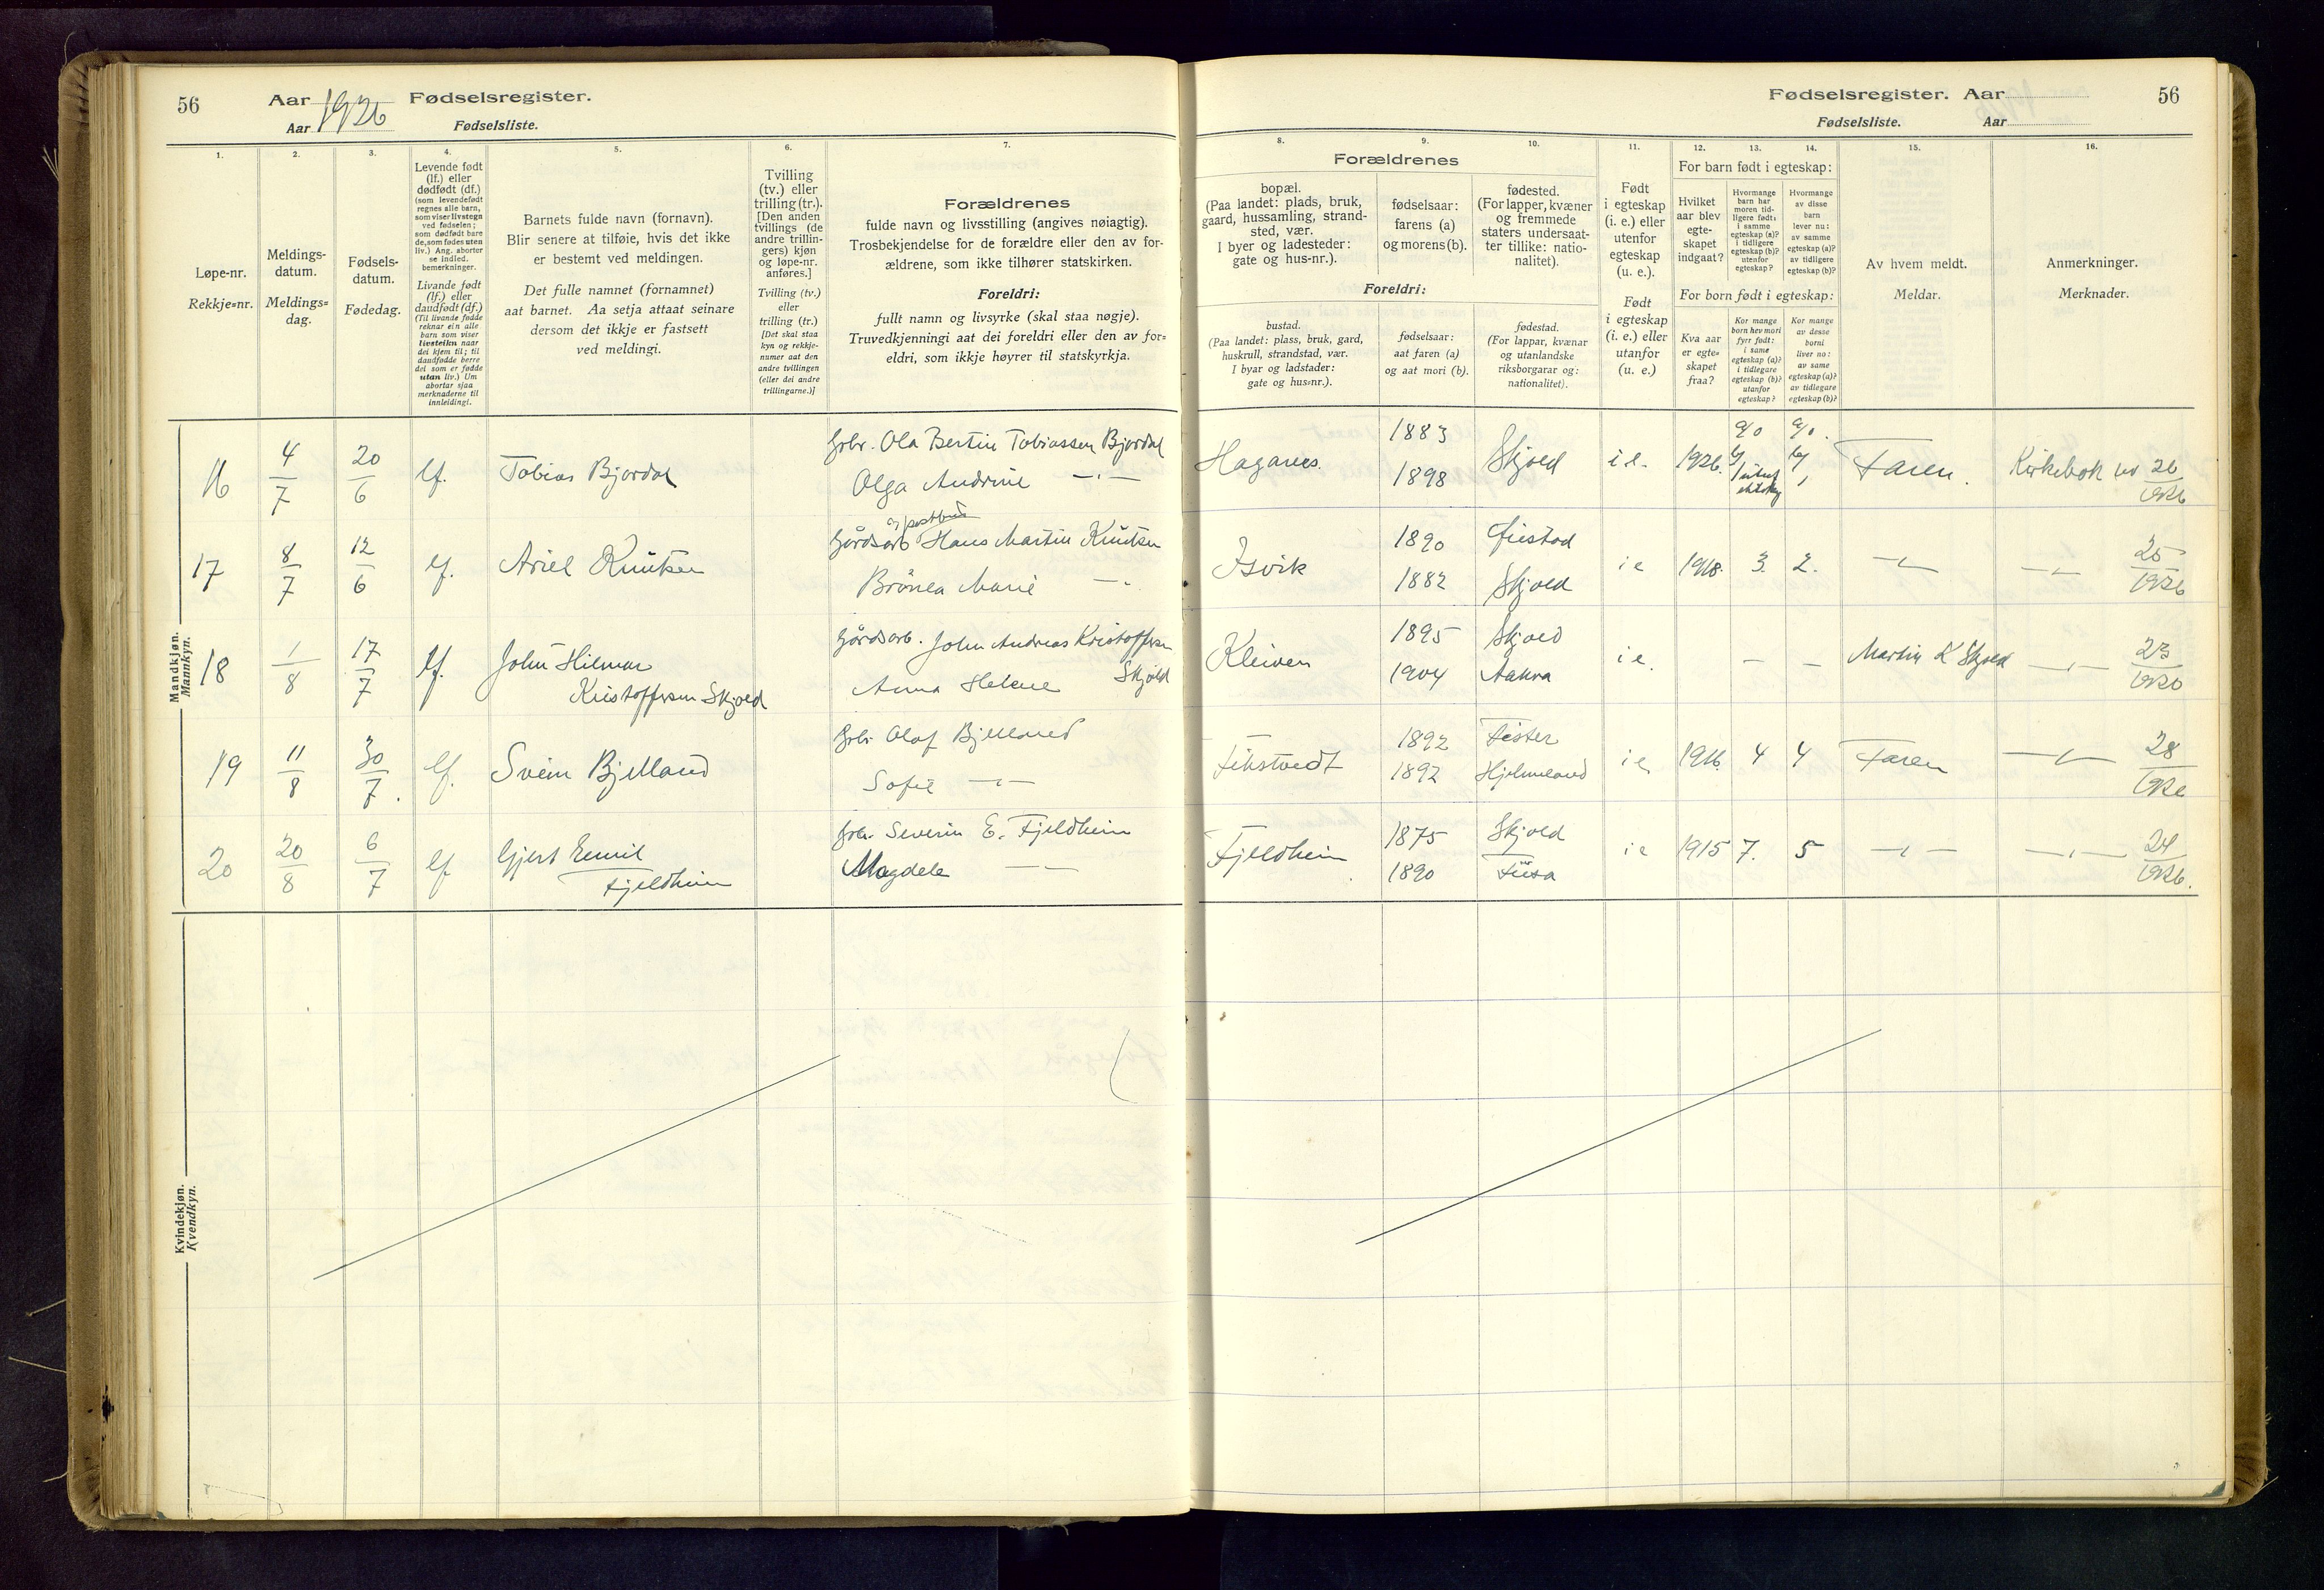 56
Aar 1926 Fødselsregister.
Aar Fødselsliste.
1.
2.
3.
4.
5.
6.
7.
Løpe-nr.
Rekkje=nr.
Meldings-
datum.
Meldings=
dag.
Fødsels-
datum.
Fødedag.
Levende født
(lf.) eller
dødfødt (df.)
(som levendefødt
regnes alle barn,
som viser livstegn
ved fødselen;
som dødfødt bare
de, som fødes uten
liv.) Ang. aborter
se indled.
bemerkninger.
Livande født
(lf.) eller
daudfødt (df.)
(Til livande fødde
reknar ein alle
barn som viser
livsteikn naar
dei kjem til; til
daudfødde berre
dei som er fødde
utan liv.) Um
abortar sjaa
merknaderne til
innleidingi.
Barnets fulde navn (fornavn).
Blir senere at tilføie, hvis det ikke
er bestemt ved meldingen.
Det fulle namnet (fornamnet)
aat barnet. Aa setja attaat seinare
dersom det ikkje er fastsett
ved meldingi.
Tvilling
(tv.) eller
trilling (tr.).
[Den anden
tvillings (de
andre trillin-
gers) kjøn
og løpe-nr.
anføres.]
Tvilling (tv.)
eller
trilling (tr.)
[Det skal staa
kyn og rekkje-
numer aat den
andre tvillingen
(eller dei andre
trillingarne.)]
Forældrenes
fulde navn og livsstilling (angives nøiagtig).
Trosbekjendelse for de forældre eller den av for-
ældrene, som ikke tilhører statskirken.
Foreldri:
fullt namn og livsyrke (skal staa nøgje).
Truvedkjenningi aat dei foreldri eller den av for=
eldri, som ikkje høyrer til statskyrkja.
Mandkjøn.
Mannkyn.
16 4/7 20/6 lf. Tobias Bjordal
Grbr. Ola Bertin Tobiassen Bjordal
Olga Andrine —"—
17 8/7 12/6 lf. Ariel Knutsen
og postbud
Gårdsarb Hans Martin Knutsen
Marie —"—
18 1/8 17/7 lf. John Hilmar
Kristoffersen Skjold
Gårdsarb. John Andreas Kristoffersen
Skjold
Anna Helene
19 11/8 30/7. lf. Svein Bjelland
Grbr Olaf Bjelland
Sofie —"—
20 20/8 6/7 lf Gjert Emil
Fjeldheim
Grbr. Severin E. Fjeldheim
Magdele —"—
Kvindekjøn.
Kvendkyn.
Fødselsregister. Aar
56
Fødselsliste. Aar
8.
9.
10.
11.
12.
13.
14.
15.
16.
Forældrenes
bopæl.
(Paa landet: plads, bruk,
gaard, hussamling, strand-
sted, vær.
I byer og ladesteder:
gate og hus-nr.).
fødselsaar:
farens (a)
og morens (b).
fødested.
(For lapper, kvæner
og fremmede
staters undersaat-
ter tillike: natio-
nalitet).
Foreldri:
bustad.
(Paa landet: plass, bruk, gard,
huskrull, strandstad, vær.
I byar og ladstader:
gate og hus=nr.).
fødselsaar:
aat faren (a)
og aat mori (b).
fødestad.
(For lappar, kvænar
og utanlandske
riksborgarar og:
nationalitet).
Født
i egteskap
(i. e.) eller
utenfor
egteskap
(u. e.).
Født
i egteskap
(i. e.) eller
utanfor
(u. e.)
For barn født i egteskap:
Hvilket
aar blev
egte-
skapet
indgaat?
Hvormange
barn har
moren tid-
ligere født:
i samme
egteskap (a)?
i tidligere
egteskap (b)?
utenfor
egteskap?
Hvormange
av disse
barn
lever nu:
av samme
egteskap (a)?
av tidligere
egteskap (b)?
For born født i egteskap:
Kva aar
er egte=
skapet
fraa?
Kor mange
born hev mori
fyrr født:
i same
egteskap (a)?
i tidlegare
egteskap (b)?
utanfor
egteskap?
Kor mange
av desse
borni
liver no:
av same
egteskap (a)?
av tidlegare
egteskap (b)?
Av hvem meldt.
Meldar.
Anmerkninger.
Merknader.
1883
Skjold i e. 1926. Faren. Kirkebok nr 26/1926
1898
1890
Isvik i e 1918. 3. 2. —"— —"— 25/1926
1882 Skjold
1895 Skjold
Kleiven i e. — — Martin K Skjold —"— 23/1926
1904 Aakra
1892 Fister
i e 1916. 4 4 Faren —"— 28/1926
1892 Hjelmeland
1875 Skjold
Fjeldheim i e 1915 7. 5 —"— —"— 24/1926.
1890 Fusa